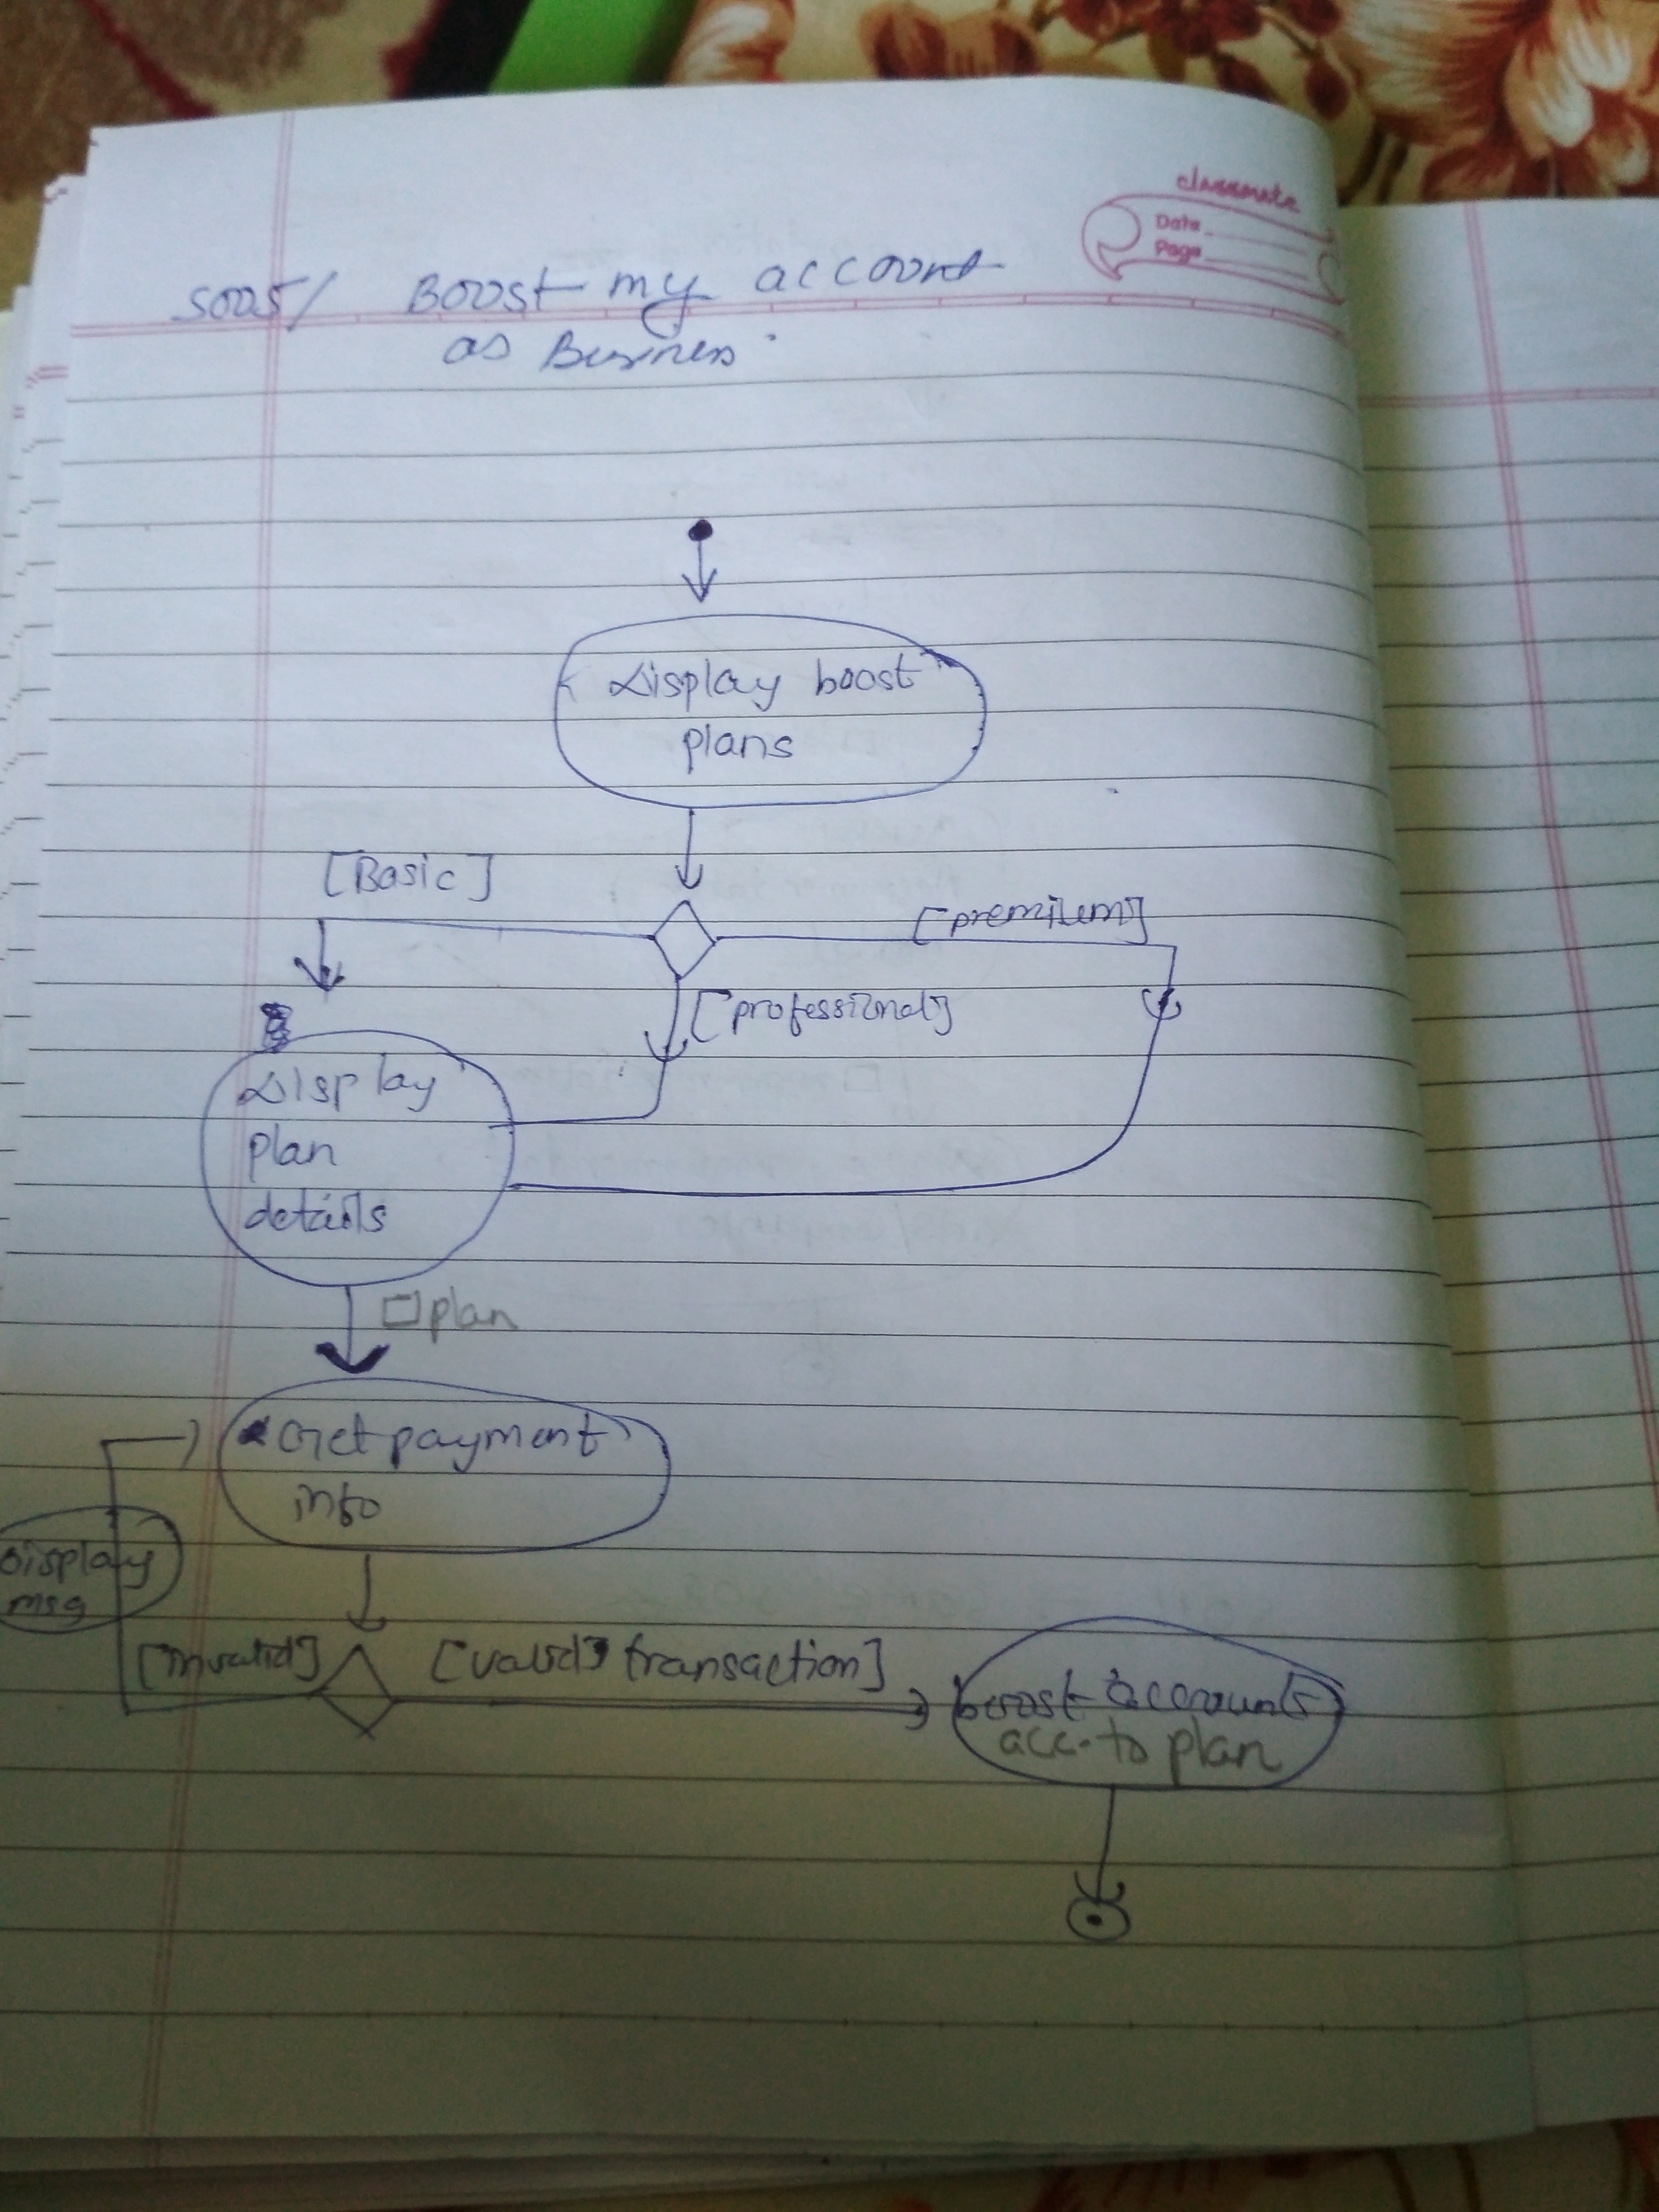 classmate
Date
Page
Boost my account
as Business
Display boost
plans
[Basic]
[premium]
[professional]
Display
plan
details
plan
Get payment
info
Display
msg
[Invalid]
[valid transaction]
boost accounts
acc. to plan